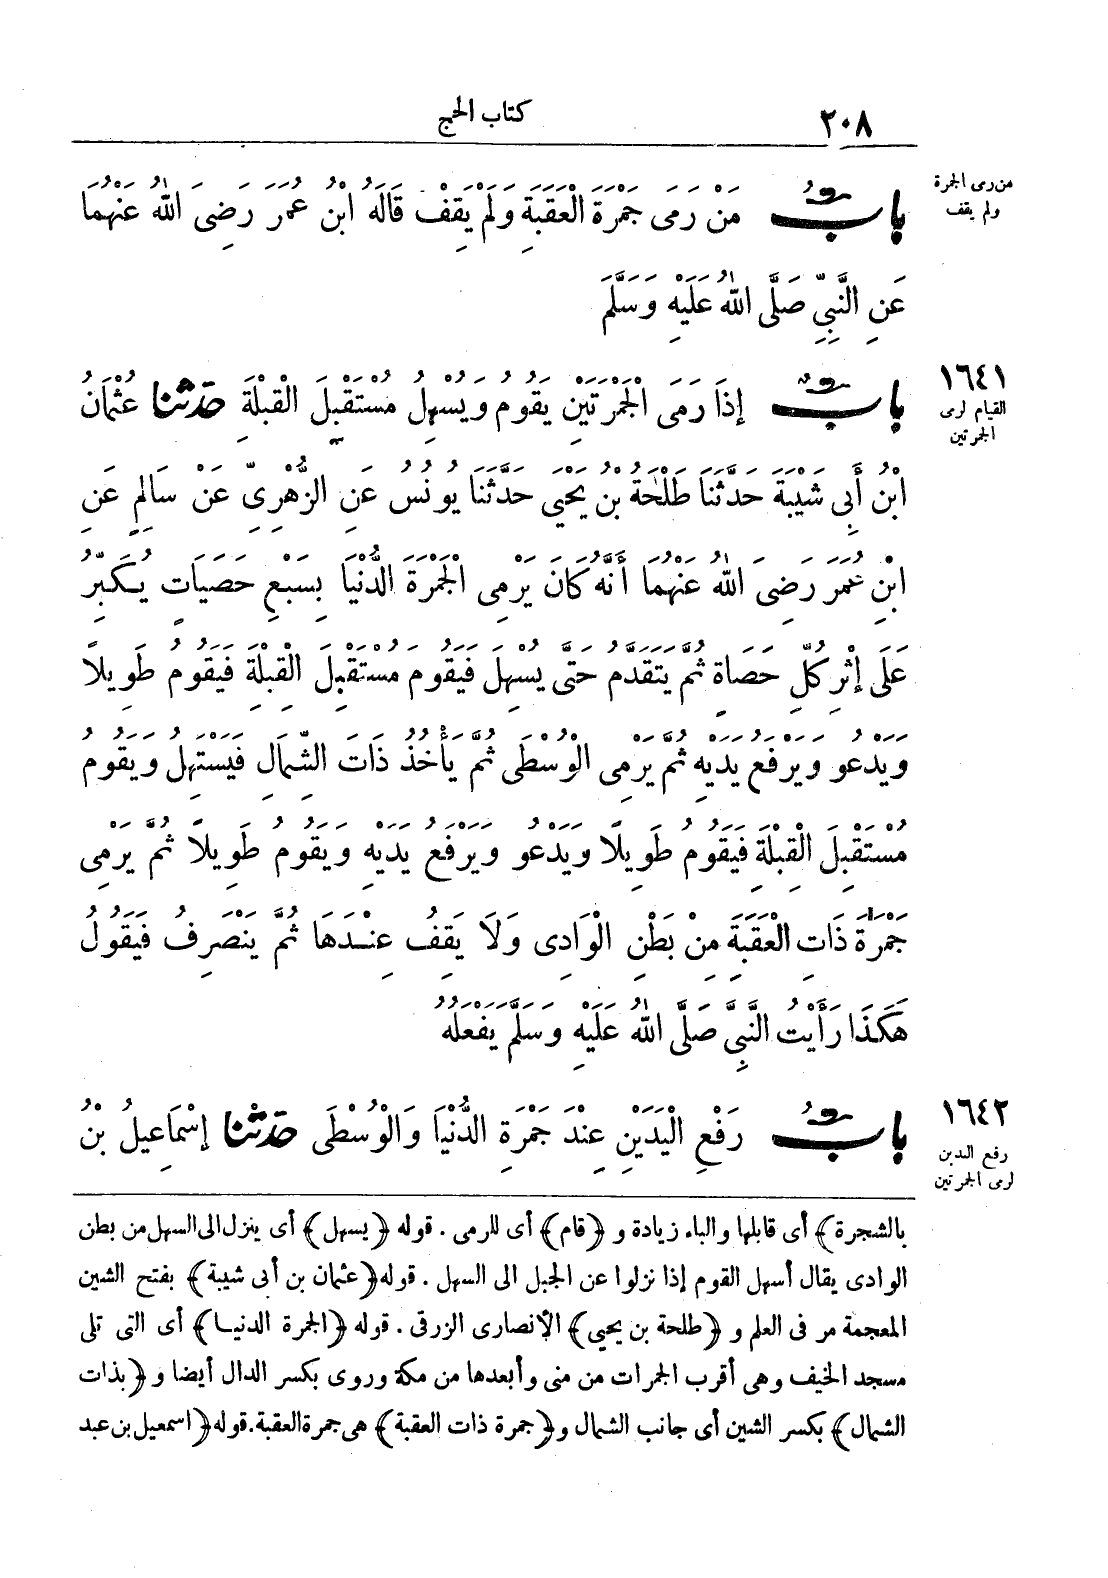 ٢٠٨ كتاب الحج
من رمى الجمرة
ولم يقف
بابُ مَنْ رَمَى جَمْرَةَ الْعَقَبَةِ وَلَمْ يَقِفْ قَالَهُ ابْنُ عُمَرَ رَضِيَ اللهُ عَنْهُمَا
عَنِ النَّبِيِّ صَلَّى اللهُ عَلَيْهِ وَسَلَّمَ
١٦٤١
القيام لرمى
الجمرتين
بابٌ إِذَا رَمَى الْجَمْرَتَيْنِ يَقُومُ وَيُسْهِلُ مُسْتَقْبِلَ الْقِبْلَةِ حَدَّثَنَا عُثْمَانُ
ابْنُ أَبِي شَيْبَةَ حَدَّثَنَا طَلْحَةُ بْنُ يَحْيَى حَدَّثَنَا يُونُسُ عَنِ الزُّهْرِيِّ عَنْ سَالِمٍ عَنِ
ابْنِ عُمَرَ رَضِيَ اللهُ عَنْهُمَا أَنَّهُ كَانَ يَرْمِى الْجَمْرَةَ الدُّنْيَا بِسَبْعِ حَصَيَاتٍ يُكَبِّرُ
عَلَى إِثْرِ كُلِّ حَصَاةٍ ثُمَّ يَتَقَدَّمُ حَتَّى يُسْهِلَ فَيَقُومَ مُسْتَقْبِلَ الْقِبْلَةِ فَيَقُومُ طَوِيلًا
وَيَدْعُو وَيَرْفَعُ يَدَيْهِ ثُمَّ يَرْمِى الْوُسْطَى ثُمَّ يَأْخُذُ ذَاتَ الشِّمَالِ فَيَسْتَهِلُ وَيَقُومُ
مُسْتَقْبِلَ الْقِبْلَةِ فَيَقُومُ طَوِيلًا وَيَدْعُو وَيَرْفَعُ يَدَيْهِ وَيَقُومُ طَوِيلًا ثُمَّ يَرْمِى
جَمْرَةَ ذَاتِ الْعَقَبَةِ مِنْ بَطْنِ الْوَادِى وَلَا يَقِفُ عِنْدَهَا ثُمَّ يَنْصَرِفُ فَيَقُولُ
هَكَذَا رَأَيْتُ النَّبِيَّ صَلَّى اللهُ عَلَيْهِ وَسَلَّمَ يَفْعَلُهُ
١٦٤٢
رفع اليدين
لرمى الجمرتين
بابُ رَفْعِ الْيَدَيْنِ عِنْدَ جَمْرَةِ الدُّنْيَا وَالْوُسْطَى حَدَّثَنَا إِسْمَاعِيلُ بْنُ
بالشجرة﴾ أى قابلها والباء زيادة و ﴿قام﴾ أى للرمى . قوله ﴿يسهل﴾ أى ينزل الى السهل من بطن
الوادى يقال أسهل القوم إذا نزلوا عن الجبل الى السهل . قوله ﴿عثمان بن أبى شيبة﴾ بفتح الشين
المعجمة مر فى العلم و ﴿طلحة بن يحيى﴾ الأنصارى الزرقى . قوله ﴿الجمرة الدنيا﴾ أى التى تلى
مسجد الخيف وهى أقرب الجمرات من منى وأبعدها من مكة وروى بكسر الدال أيضا و ﴿بذات
الشمال﴾ بكسر الشين أى جانب الشمال و﴿جمرة ذات العقبة﴾ هى جمرة العقبة. قوله ﴿اسمعيل بن عبد